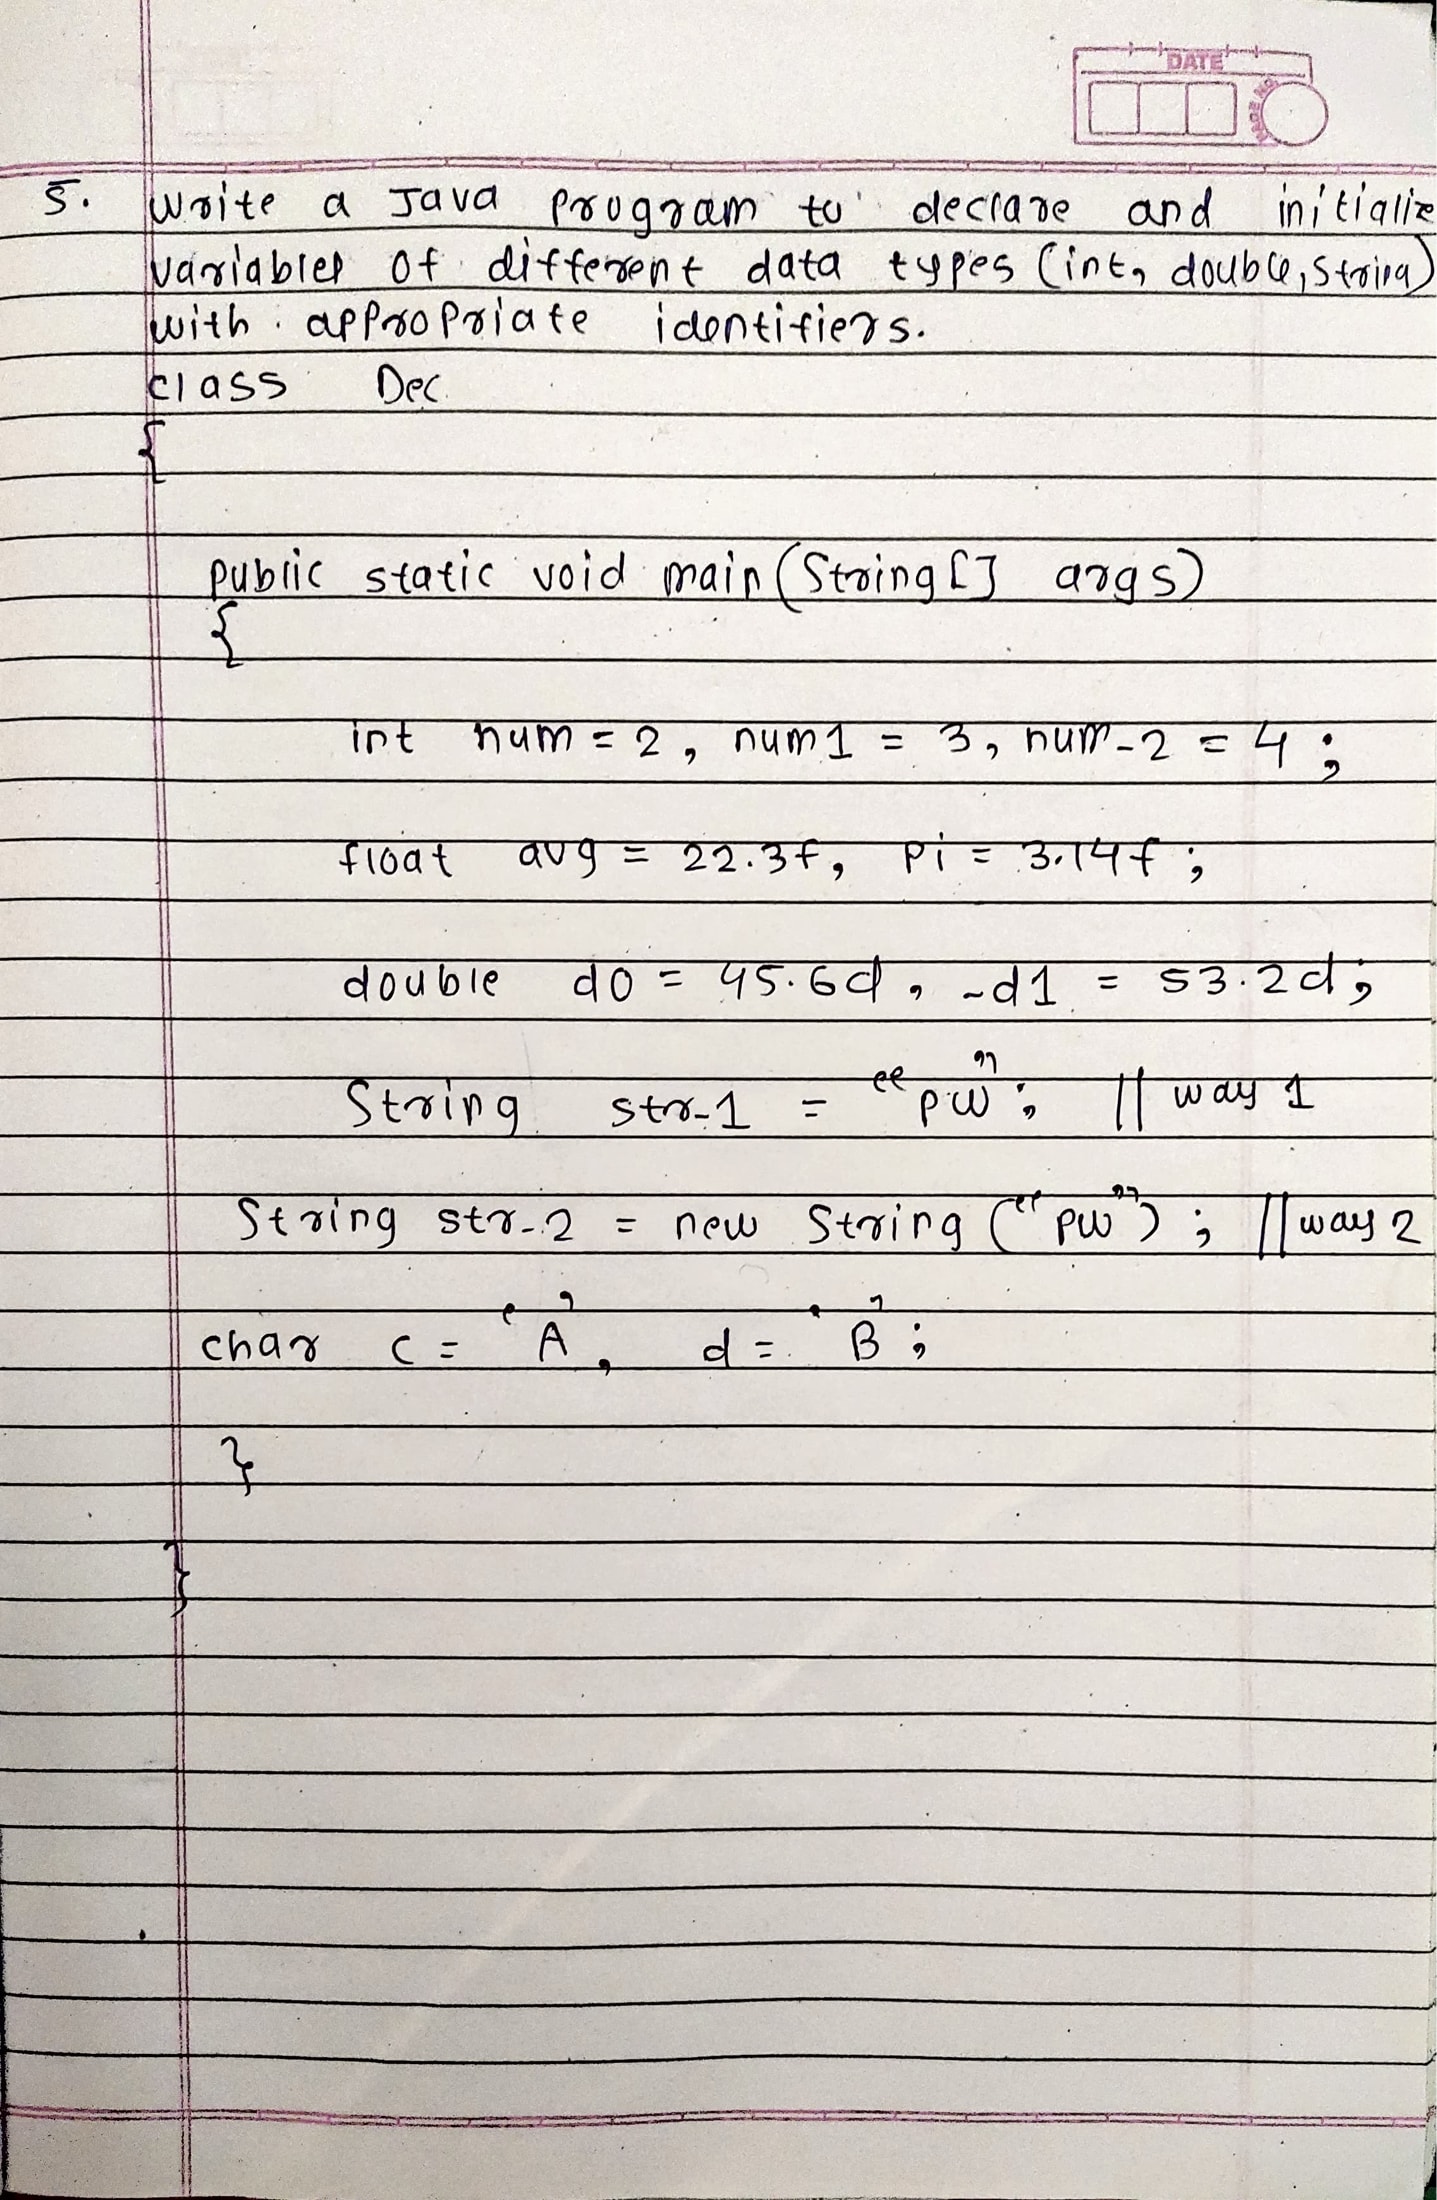 DATE
PAGE NO.
5. Write a Java program to declare and initialize
variables of different data types (int, double, String)
with appropriate identifiers.
class Dec
{
public static void main(String[] args)
{
int num = 2, num1 = 3, num_2 = 4;
float avg = 22.3f, pi = 3.14f;
double d0 = 45.6d, _d1 = 53.2d;
String str_1 = "pw"; // way 1
String str_2 = new String ("pw"); // way 2
char c = 'A', d = 'B';
}
}